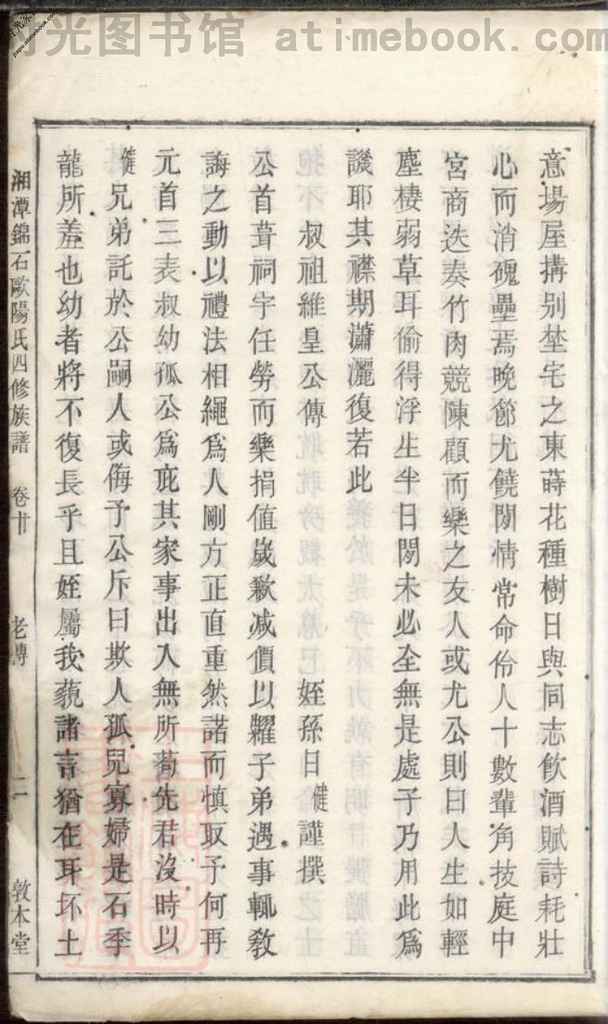 时光图书馆 atimebook.com
意場屋搆别埜宅之東蒔花種樹日與同志飲酒賦詩耗壯
心而消磈壘焉晚節尤饒閒情常命伶人十數輩角技庭中
宮商迭奏竹肉競陳顧而樂之友人或尤公則曰人生如輕
塵棲弱草耳偷得浮生半日閒未必全無是處子乃用此爲
譏耶其襟期瀟灑復若此
叔祖維皇公傳 姪孫日健謹撰
公首葺祠宇任勞而樂捐值歲歉减價以糶子弟遇事輒敎
誨之動以禮法相繩爲人剛方正直重然諾而慎取予何再
元首三表叔幼孤公爲庇其家事出入無所苟先君沒時以
健兄弟託於公嗣人或侮予公斥曰欺人孤兒寡婦是石季
龍所羞也幼者將不復長乎且姪屬我藐諸言猶在耳抔土
湘潭錦石歐陽氏四修族譜 卷廿 老傳 二 敦本堂